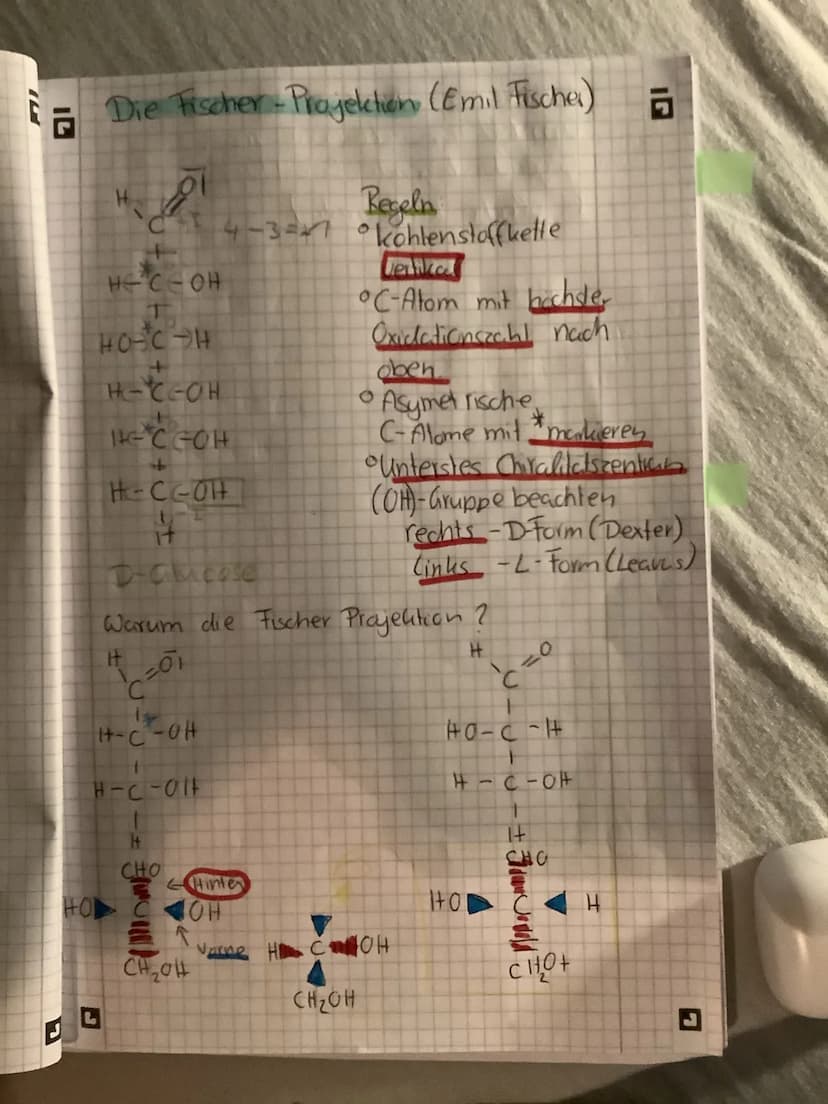 Die Fischer-Projektion (Emil Fischer)
H O
C 4-3=
H-*C-OH
HO-*C-H
H-*C-OH
H-*C-OH
H-C-OH
H
D-Glucose
Regeln
Kohlenstoffkette
Vertikal
C-Atom mit höchster
Oxidationszahl nach
oben
Asymetrische
C-Atome mit * markieren
Unterstes Chiralitätszentrum
(OH)-Gruppe beachten
rechts - D-Form (Dexter)
Links - L-Form (Leavus)
Warum die Fischer Projektion?
H O
C
H-C*-OH
H-C-OH
H
CHO
← Hinten
HO C OH
Vorne
CH₂OH
H C OH
CH₂OH
H O
C
HO-C-H
H-C-OH
H
CHO
HO C H
CH₂OH